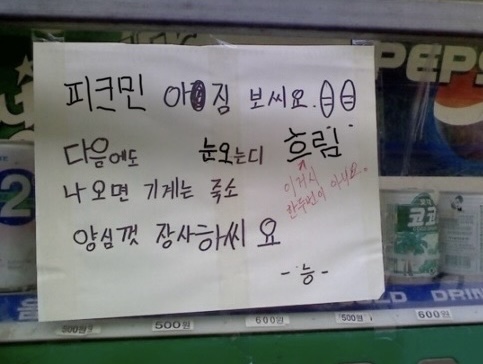 PEPS
피크민 아짐 보씨요.
다음에도 눈오는디 흐림
나오면 기계는 죽소
이거시
한두번이 아니요.
양심껏 장사하씨요
-능-
2
코코
COLD DRIN
500원 500원 600원 500원 600원